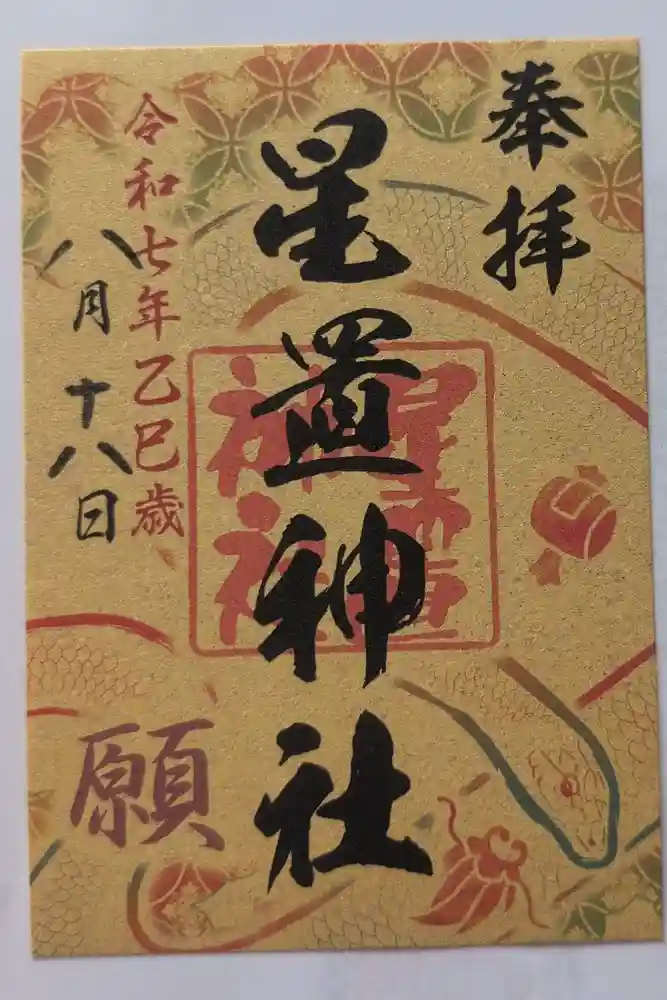 奉拝
星置神社
星置
神社
令和七年乙巳歳
八月十八日
願